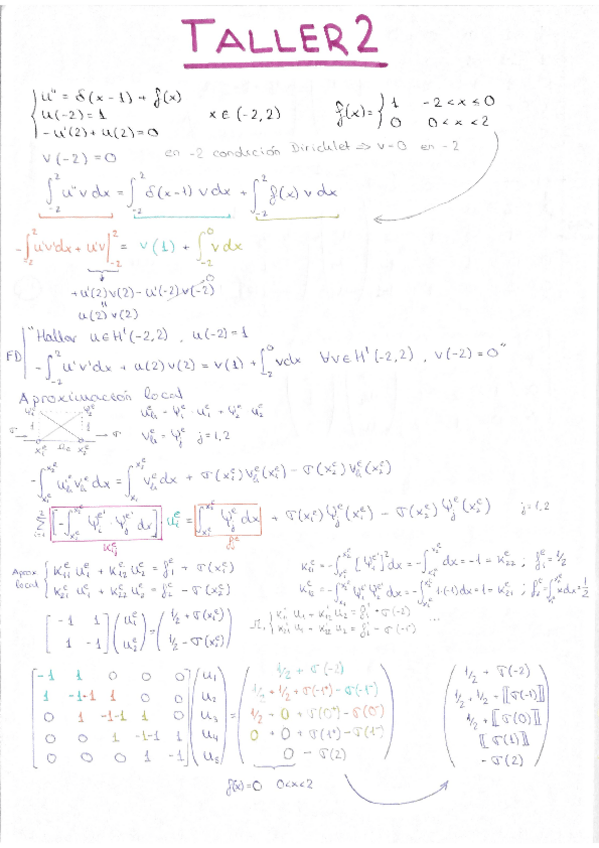 TALLER 2
u'' = δ(x-1) + f(x)
u(-2) = 1
x ∈ (-2,2)
f(x) = { 1 -2 < x ≤ 0
0 0 < x < 2
-u'(2) + u(2) = 0
v(-2) = 0 en -2 condición Dirichlet ⇒ v=0 en -2
∫_{-2}^{2} u''v dx = ∫_{-2}^{2} δ(x-1) v dx + ∫_{-2}^{2} f(x) v dx
-∫_{-2}^{2} u'v'dx + u'v|_{-2}^{2} = v(1) + ∫_{-2}^{0} v dx
+u'(2)v(2) - u'(-2)v(-2) 0
u(2)v(2)
FD "Hallar u ∈ H'(-2,2), u(-2)=1
-∫_{-2}^{2} u'v'dx + u(2)v(2) = v(1) + ∫_{-2}^{0} vdx ∀v∈H'(-2,2), v(-2)=0"
Aproximación local
ψ₁ᵉ ψ₂ᵉ
uₕᵉ = ψ₁ᵉ · u₁ᵉ + ψ₂ᵉ · u₂ᵉ
vₕᵉ = ψⱼᵉ j=1,2
σ → 1 1 → σ
x₁ᵉ Ωₑ x₂ᵉ
-∫_{x₁ᵉ}^{x₂ᵉ} uₕᵉ' vₕᵉ' dx = ∫_{x₁ᵉ}^{x₂ᵉ} vₕᵉ dx + σ(x₁ᵉ) vₕᵉ(x₁ᵉ) - σ(x₂ᵉ) vₕᵉ(x₂ᵉ)
Σ_{i=1}^{2} [-∫_{x₁ᵉ}^{x₂ᵉ} ψᵢᵉ' · ψⱼᵉ' dx] uᵢᵉ = ∫_{x₁ᵉ}^{x₂ᵉ} ψⱼᵉ dx + σ(x₁ᵉ) ψⱼᵉ(x₁ᵉ) - σ(x₂ᵉ) ψⱼᵉ(x₂ᵉ) j=1,2
Kᵢⱼᵉ fᵉ
Aprox local { K₁₁ᵉ u₁ᵉ + K₁₂ᵉ u₂ᵉ = f₁ᵉ + σ(x₁ᵉ)
K₂₁ᵉ u₁ᵉ + K₂₂ᵉ u₂ᵉ = f₂ᵉ - σ(x₂ᵉ)
K₁₁ᵉ = -∫_{x₁ᵉ}^{x₂ᵉ} [ψ₁ᵉ']² dx = -∫_{x₁ᵉ}^{x₂ᵉ} dx = -1 = K₂₂ᵉ ; f₁ᵉ = 1/2
K₁₂ᵉ = -∫_{x₁ᵉ}^{x₂ᵉ} ψ₁ᵉ' ψ₂ᵉ' dx = -∫_{x₁ᵉ}^{x₂ᵉ} 1·(-1) dx = 1 = K₂₁ᵉ ; f₂ᵉ = ∫_{x₁ᵉ}^{x₂ᵉ} xdx = 1/2
[-1 1] (u₁ᵉ) = (1/2 + σ(x₁ᵉ))
[1 -1] (u₂ᵉ) (1/2 - σ(x₂ᵉ))
Ω₁ { K₁₁' u₁ + K₁₂' u₂ = f₁' + σ(-2)
K₂₁' u₁ + K₂₂' u₂ = f₂' - σ(-1⁻) ...
-1 1 0 0 0 u₁ = 1/2 + σ(-2) 1/2 + σ(-2)
1 -1-1 1 0 0 u₂ 1/2 + 1/2 + σ(-1⁺) - σ(-1⁻) 1/2 + 1/2 - [[σ(-1)]]
0 1 -1-1 1 0 u₃ 1/2 + 0 + σ(0⁺) - σ(0⁻) 1/2 + [[σ(0)]]
0 0 1 -1-1 1 u₄ 0 + 0 + σ(1⁺) - σ(1⁻) [[σ(1)]]
0 0 0 1 -1 u₅ 0 - σ(2) - σ(2)
f(x)=0 0<x<2